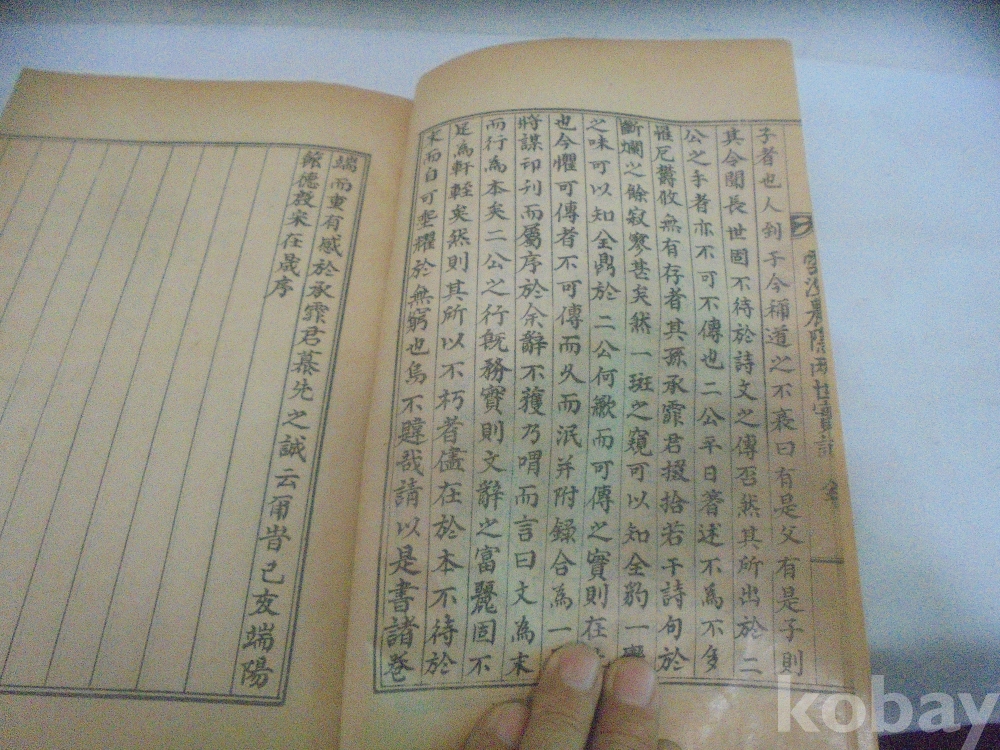 子者也人到于今稱道之不衰曰有是父有是子則
其令聞長世固不待於詩文之傳否然其所出於二
公之手者亦不可不傳也二公平日著述不爲不多
罹厄鬱攸無有存者其孫承霏君掇拾若干詩句於
斷爛之餘寂寥甚矣然一斑之窺可以知全豹一臠
之味可以知全鼎於二公何歉而可傳之實則在
也今懼可傳者不可傳而久而泯并附錄合為一
將謀印刊而屬序於余辭不獲乃喟而言曰文為末
而行為本矣二公之行旣務實則文辭之富麗固不
足為軒輊矣然則其所以不朽者儘在於本不待於
末而自可垂耀於無窮也烏不韙哉請以是書諸卷
端而重有感於承霏君慕先之誠云爾旹己亥端陽
節德殷宋在晟序
雲沙農隱兩世實記
kobay